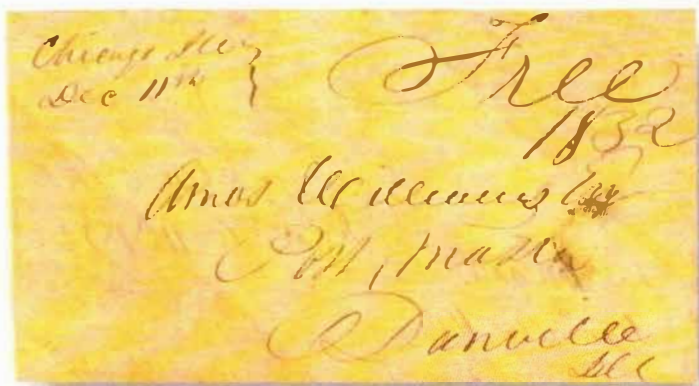 Chicago Ills
Dec 11th
Free
1832
Amos Williams Esq
Post, Master
Danville
Ill